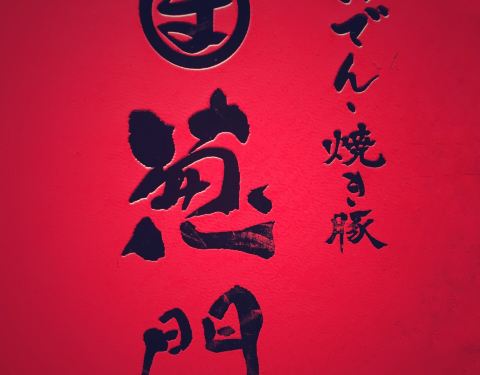 おでん・焼き豚
葱門